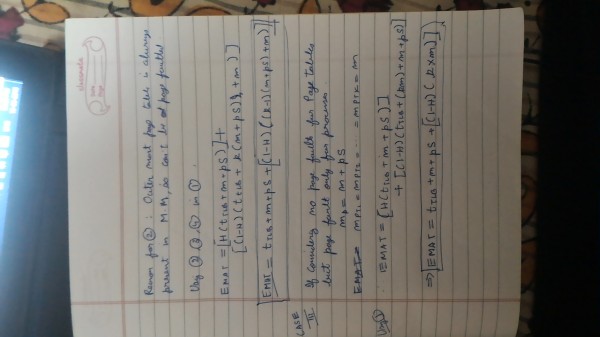 Reason for ②: Outer most page table is always
present in M.M, so can't be a page fault
Using ② ④ ⑤ in ①.
EMAT = [H(tTLB + m + pS)] +
[(1-H)(tTLB + k(m + pS) + m)]
EMAT = tTLB + m + pS + [(1-H)((k-1)(m+pS) + m)]
CASE III
If considering no page fault for Page tables
but page fault only for process
mp = m + pS
mPT1 = mPT2 = ... = mPTK = m
Using ①
EMAT = [H(tTLB + m + pS)]
+ [(1-H)(tTLB + (km) + m + pS)]
⇒ EMAT = tTLB + m + pS + [(1-H)(k×m)]